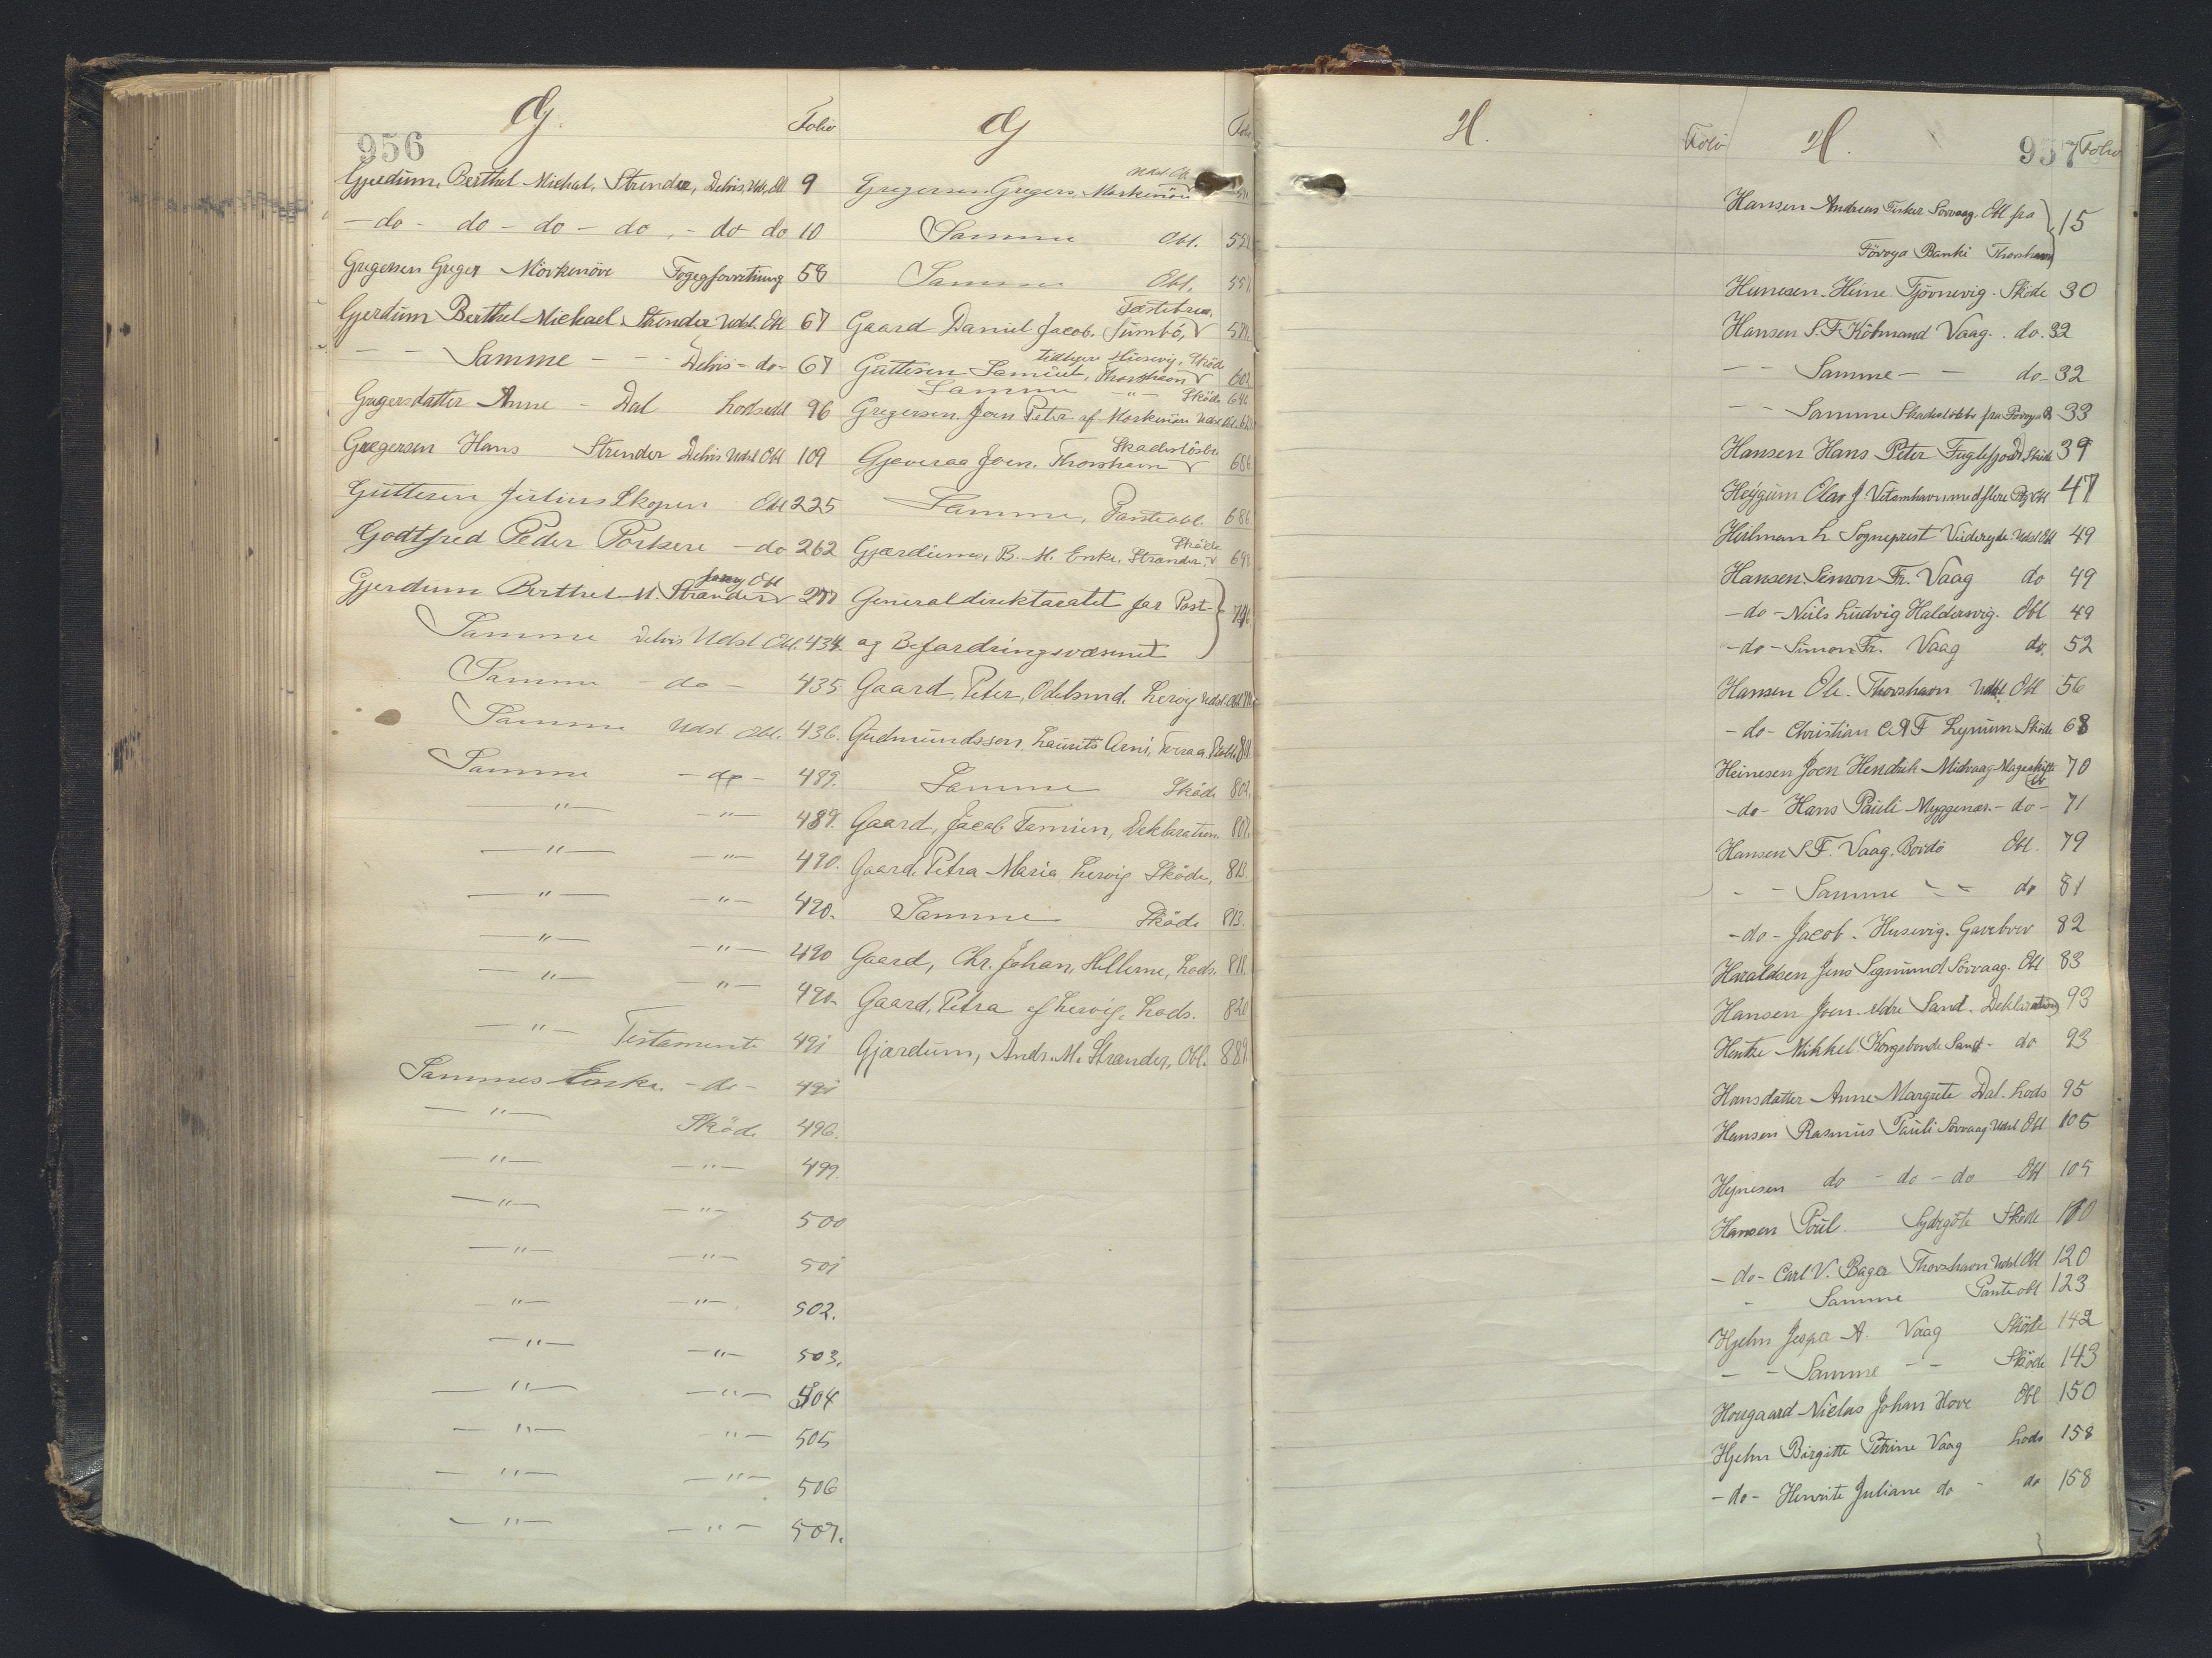 956
G.
Folio
Gjerdum, Berthel Michal, Strender, Delvis, Uds, Obl 9
- do - do - do - do - do do 10
Gregersen Greger Mörkenöre Fogegforretning 58
Gjerdum Berthel Michael Strender Udsl. Obl 67
- - Samme - - Delvis - do - 67
Gregersdatter Anne - Dal Lodseddel 96
Gregersen Hans Strender Delvis Udsl Obl 109
Guttesen Julius Skopen Obl 225
Godtfred Peder Porkere - do 262
Gjerdum Berthel M. Strander Obl 277
Samme Delvis Udsl Obl. 434.
Samme - do - 435
Samme Udsl. Obl. 436.
Samme - do - 489.
—"— —"— 489.
—"— —"— 490.
—"— —"— 490.
—"— —"— 490
—"— —"— 490.
—"— Testamente 491
Sammes Enke - do - 491
—"— Sköde 496.
—"— —"— 499.
—"— —"— 500
—"— —"— 501
—"— —"— 502.
—"— —"— 503.
—"— —"— 504
—"— —"— 505
—"— —"— 506
—"— —"— 507.
G
Gregersen Gregers, Morkenöre
Samme Obl.
Samme Obl.
Festebrev,
Gaard Daniel Jacob. Sumbö,
tidligere Husevig, Sköde
Guttesen Samuel, Thorshavn
Samme —"— Sköde
Gregersen Joen Peter af Morkenöre
Skadeslösbr.
Gjoveraa Joen. Thorshavn 686
Samme, Panteobl. 686
Sköde
Gjærdums, B. M. Enke, Strander 698
Generaldirektoratet for Post-
og Befordringsvæsenet
Gaard, Peter, Ödelsmd. Lervig Udsl. Obl
Gudmundsson, Laurits Arni, Tveraa
Samme Sköde 802.
Gaard, Jacob Famien, Deklaration. 807.
Gaard, Petra Maria, Lervig Sköde, 813.
Samme Sköde 813.
Gaard, Chr. Johan, Hellerne, Lods.
Gaard, Petra af Lervig, Lods. 820
Gjærdum, Andr. M. Strander, Obl. 889.
H.
Folio
H.
957 Folio
Hansen Andreas Fisker Sorvaag. Obl fra } 15
Föroya Banki Thorshavn
Hunesen Heine Tjörnevig. Sköde 30
Hansen S. F. Köbmand Vaag. do. 32
- - Samme - - do - 32
- - Samme Skadeslösbr fra Föroya B 33
Hansen Hans Peter Fuglefjord Sköde 39
Heygum Olav J. Vestmanhavn med flere Obl 47
Heilmann L. Sogneprest Viderejde Udsl Obl 49
Hansen Simon Fr. Vaag do 49
- do - Niels Ludvig Haldersvig. Obl 49
- do - Simon Fr. Vaag do. 52
Hansen Ole. Thorshavn Udsl Obl 56
- do - Christian C A F Lynum Sköde 68
Heinesen Joen Hendrik Midvaag Mageskifte 70
- do - Hans Pauli Myggenæs - do - 71
Hansen S. F. Vaag, Bordö Obl. 79
- - Samme - - do 81
- do - Jacob - Husevig. Gavebrev 82
Haraldsen Jens Segmund Sörvaag. Obl 83
Hansen Joen. eldre Sand. Deklaration 93
Hentze Mikkel Kongsbonde Sand - do 93
Hansdatter Anne Margrete Dal. Lods 95
Hansen Rasmus Pauli Sörvaag Udsl Obl 105
Hejnesen do - do - do Obl 105
Hansen Poul. Sydrgöte Sköde 110
- do - Carl V. Bager Thorshavn Udsl Obl 120
- Samme Pante obl 123
Hjelm Jespa A. Vaag Sköde 142
- - Samme - - Sköde 143
Hougaard Nielas Johan Hove Obl 150
Hjelm Birgitte Petrine Vaag Lods 158
- do - Henrite Juliane do - do 158